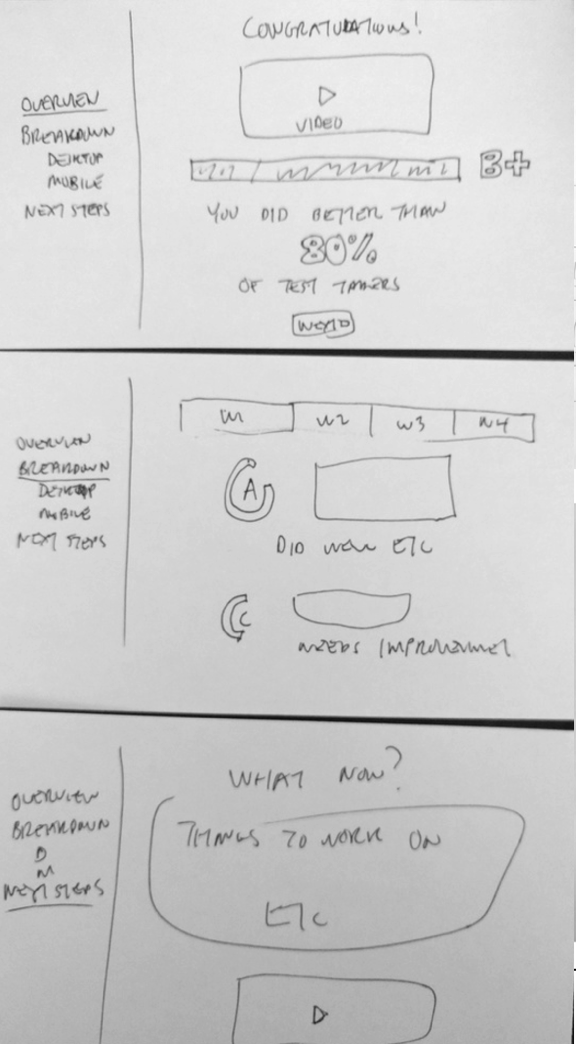 CONGRATULATIONS!
OVERVIEW
BREAKDOWN
DESKTOP
MOBILE
NEXT STEPS
VIDEO
B+
YOU DID BETTER THAN
80%
OF TEST TAKERS
OVERVIEW
BREAKDOWN
DESKTOP
MOBILE
NEXT STEPS
M1 M2 M3 M4
A
DID WELL ETC
C
NEEDS IMPROVEMENT
OVERVIEW
BREAKDOWN
D
M
NEXT STEPS
WHAT NOW?
THINGS TO WORK ON
ETC